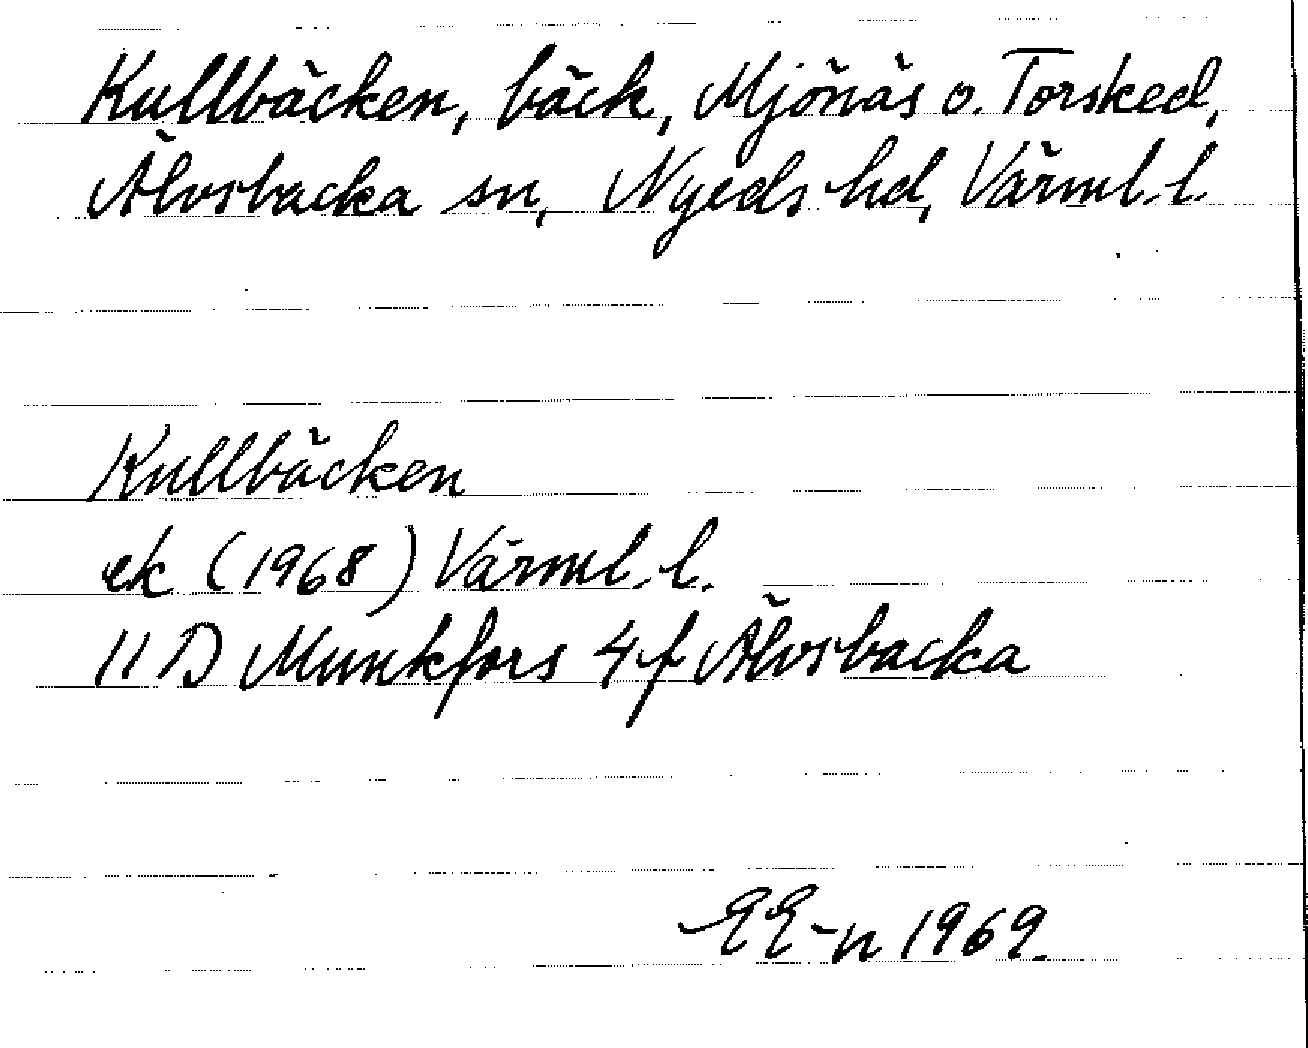 Kullbäcken, bäck, Mjönäs o. Torsked,
Älvsbacka sn, Nyeds hd, Värml. l.
Kullbäcken
ek (1968) Värml. l.
11 D Munkfors 4 f Älvsbacka
EE-n 1969.